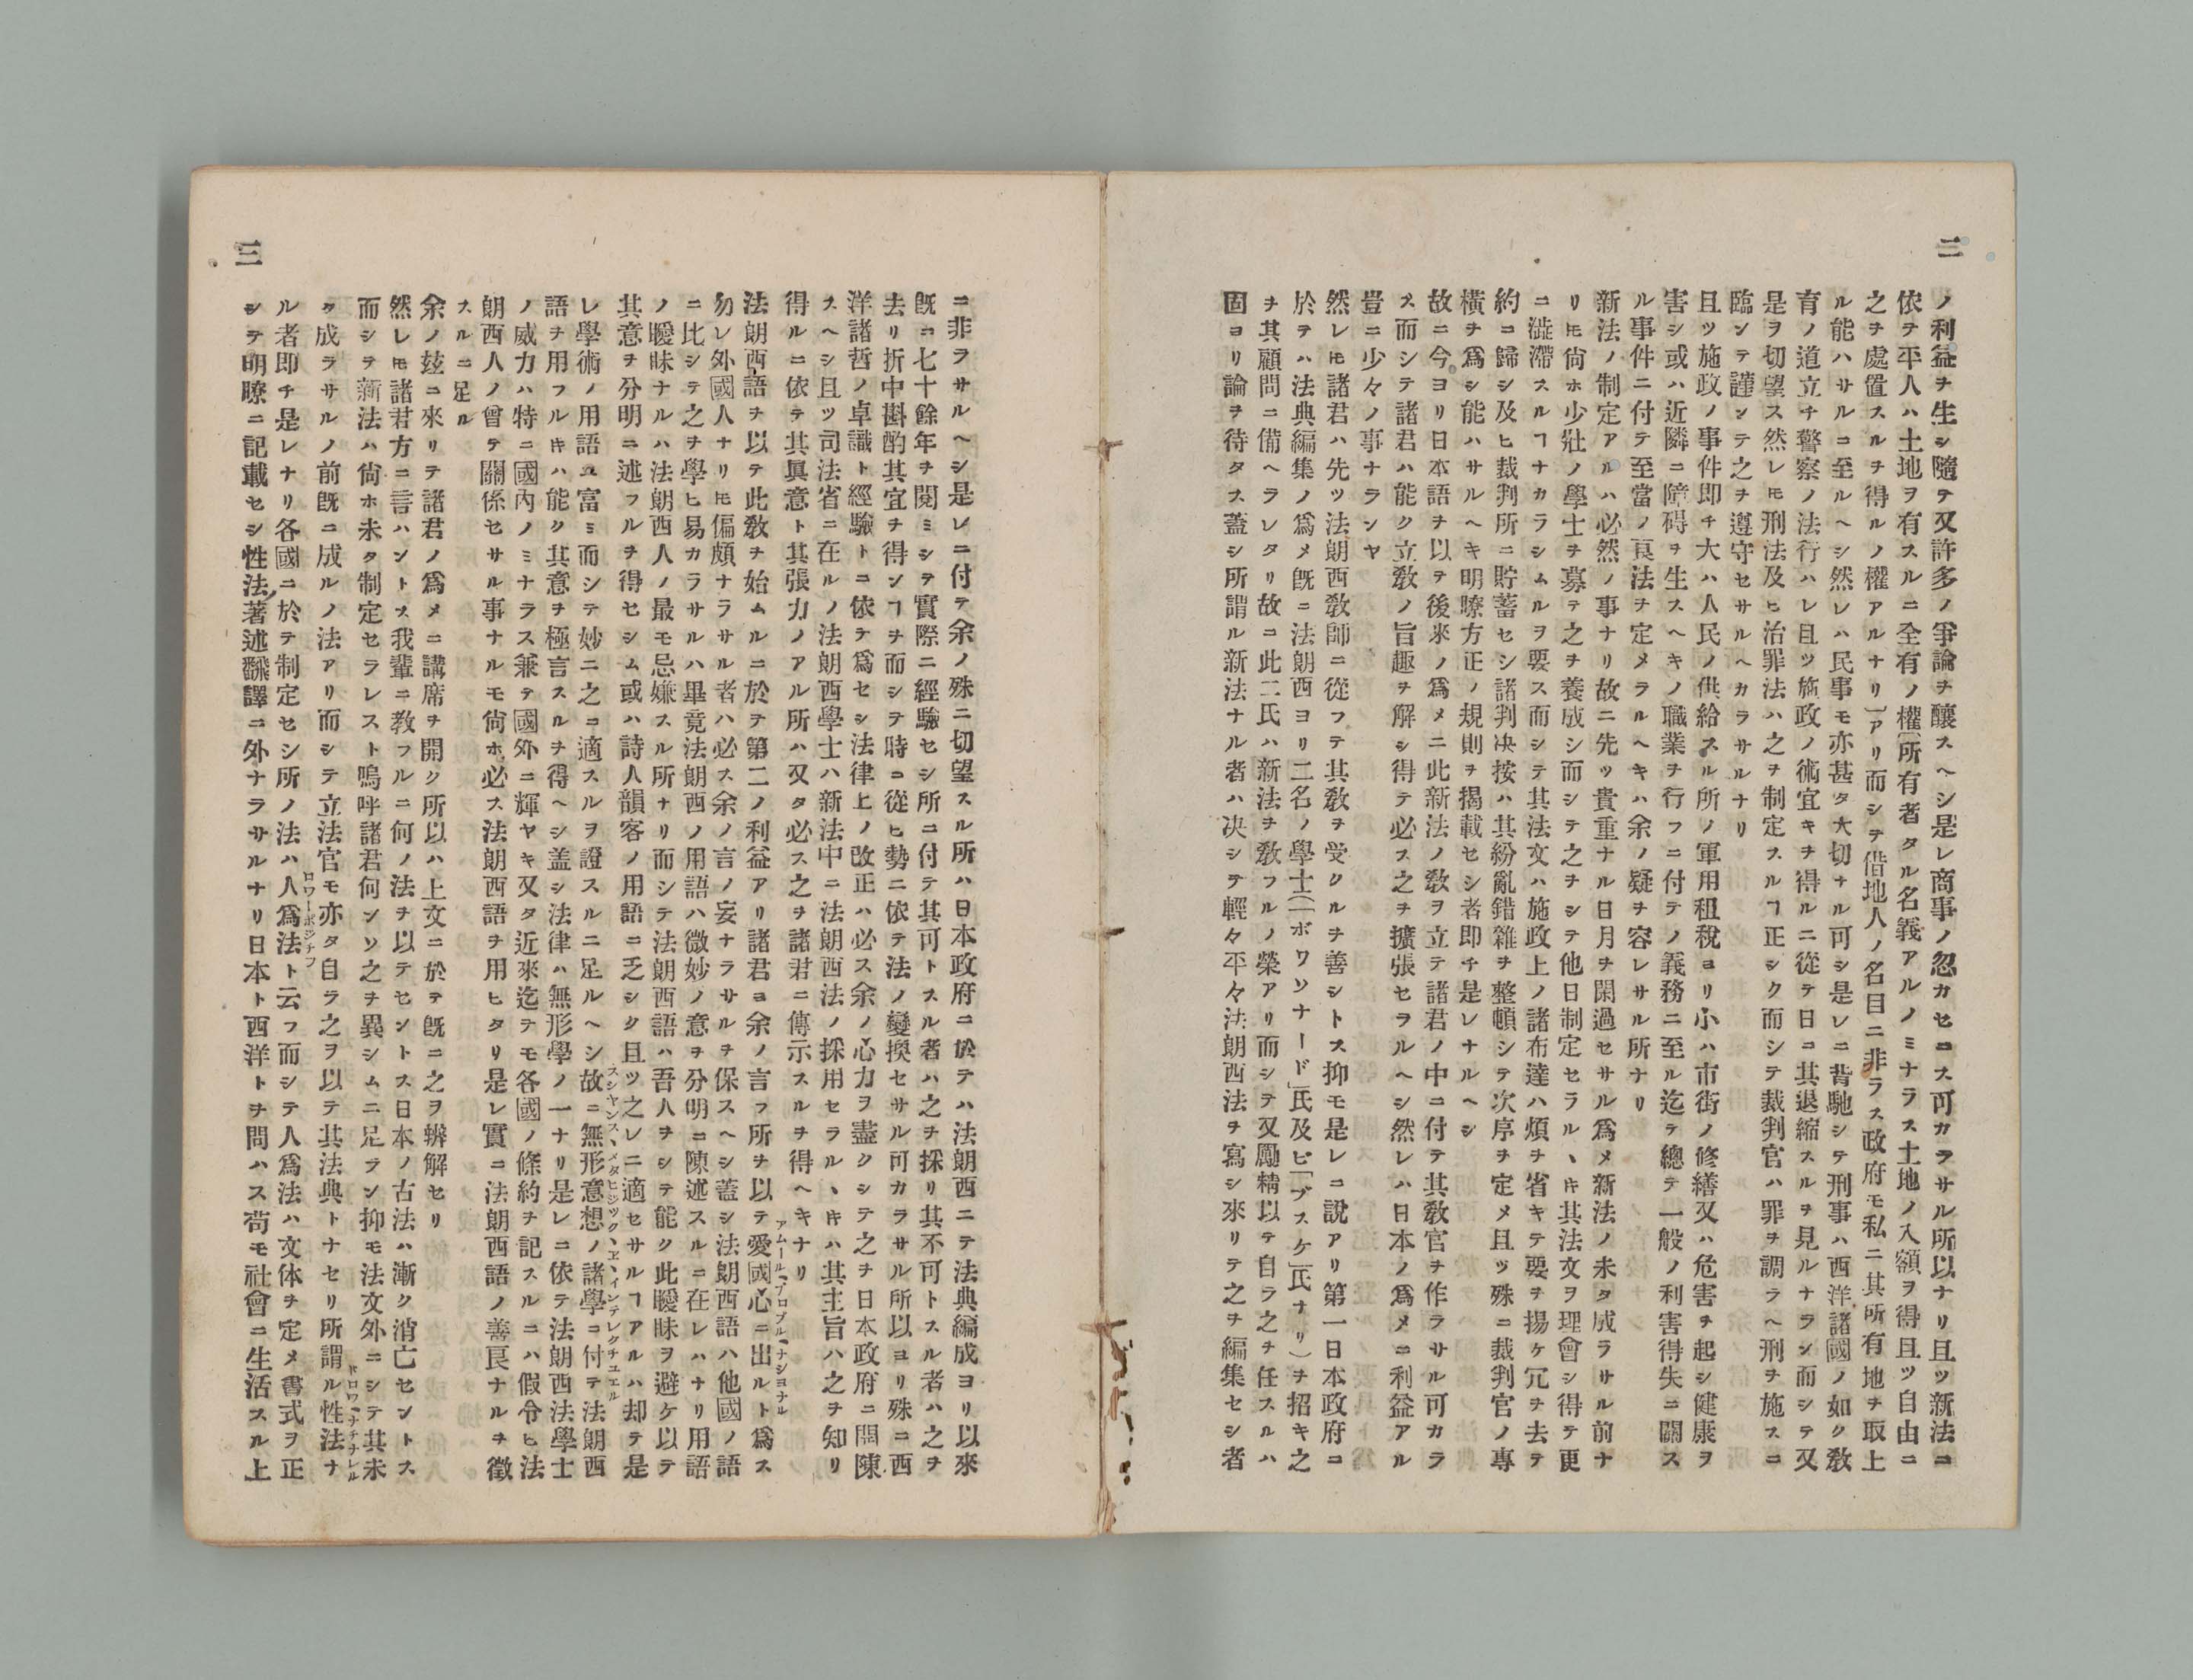 二
ノ利益ヲ生シ隨テ又許多ノ爭論ヲ釀スヘシ是レ商事ノ忽カセニス可カラサル所以ナリ且ツ新法ニ
依テ平人ハ土地ヲ有スルニ全有ノ權(所有者タル名義アルノミナラス土地ノ入額ヲ得且ツ自由ニ
之ヲ處置スルヲ得ルノ權アルナリ)アリ而シテ借地人ノ名目ニ非ラス政府モ私ニ其所有地ヲ取上
ル能ハサルニ至ルヘシ然レハ民事モ亦甚タ大切ナル可シ是レニ背馳シテ刑事ハ西洋諸國ノ如ク敎
育ノ道立チ警察ノ法行ハレ且ツ施政ノ術宜キヲ得ルニ從テ日ニ其退縮スルヲ見ルナラン而シテ又
是ヲ切望ス然レㇳモ刑法及ヒ治罪法ハ之ヲ制定スルヿ正シク而シテ裁判官ハ罪ヲ調ラヘ刑ヲ施スニ
臨ンテ謹ンテ之ヲ遵守セサルヘカラサルナリ
且ツ施政ノ事件即チ大ハ人民ノ供給スル所ノ軍用租稅ヨリ小ハ市街ノ修繕又ハ危害ヲ起シ健康ヲ
害シ或ハ近隣ニ障碍ヲ生スヘキノ職業ヲ行フニ付テノ義務ニ至ル迄テ總テ一般ノ利害得失ニ關ス
ル事件ニ付テ至當ノ良法ヲ定メラルヘキハ余ノ疑ヲ容レサル所ナリ
新法ノ制定アルハ必然ノ事ナリ故ニ先ツ貴重ナル日月ヲ閑過セサル爲メ新法ノ未タ成ラサル前ナ
リㇳモ尙ホ少壯ノ學士ヲ募テ之ヲ養成シ而シテ之ヲシテ他日制定セラルヽキ其法文ヲ理會シ得テ更
ニ澁滯スルヿナカラシムルヲ要ス而シテ其法文ハ施政上ノ諸布達ハ煩ヲ省キテ要ヲ揚ケ冗ヲ去テ
約ニ歸シ及ヒ裁判所ニ貯蓄セシ諸判决按ハ其紛亂錯雜ヲ整頓シテ次序ヲ定メ且ツ殊ニ裁判官ノ專
橫ヲ爲シ能ハサルヘキ明瞭方正ノ規則ヲ揭載セシ者即チ是レナルヘシ
故ニ今ヨリ日本語ヲ以テ後來ノ爲メニ此新法ノ敎ヲ立テ諸君ノ中ニ付テ其敎官ヲ作ラサル可カラ
ス而シテ諸君ハ能ク立敎ノ旨趣ヲ解シ得テ必ス之ヲ擴張セラルヘシ然レハ日本ノ爲メニ利益アル
豈ニ少々ノ事ナランヤ
然レㇳモ諸君ハ先ツ法朗西敎師ニ從フテ其敎ヲ受クルヲ善シトス抑モ是レニ說アリ第一日本政府ニ
於テハ法典編集ノ爲メ既ニ法朗西ヨリ二名ノ學士(「ボワソナード」氏及ヒ「ブスケ」氏ナリ)ヲ招キ之
ヲ其顧問ニ備ヘラレタリ故ニ此二氏ハ新法ヲ敎フルノ榮アリ而シテ又勵精以テ自ラ之ヲ任スルハ
固ヨリ論ヲ待タス蓋シ所謂ル新法ナル者ハ决シテ輕々平々法朗西法ヲ寫シ來リテ之ヲ編集セシ者
ニ非ラサルヘシ是レニ付テ余ノ殊ニ切望スル所ハ日本政府ニ於テハ法朗西ニテ法典編成ヨリ以來
既ニ七十餘年ヲ閱ミシテ實際ニ經驗セシ所ニ付テ其可トスル者ハ之ヲ採リ其不可トスル者ハ之ヲ
去リ折中斟酌其宜ヲ得ンヿヲ而シテ時ニ從ヒ勢ニ依テ法ノ變換セサル可カラサル所以ヨリ殊ニ西
洋諸哲ノ卓識ト經驗トニ依テ爲セシ法律上ノ改正ハ必ス余ノ心力ヲ盡クシテ之ヲ日本政府ニ開陳
スヘシ且ツ司法省ニ在ルノ法朗西學士ハ新法中ニ法朗西法ノ採用セラルヽキハ其主旨ハ之ヲ知リ
得ルニ依テ其眞意ト其張力ノアル所ハ又タ必ス之ヲ諸君ニ傳示スルヲ得ヘキナリ
法朗西語ヲ以テ此敎ヲ始ムルニ於テ第二ノ利益アリ諸君ヨ余ノ言フ所ヲ以テ愛國心ニ出ルト爲ス
アムールプロプルナショナル
勿レ外國人ナリㇳモ偏頗ナラサル者ハ必ス余ノ言ノ妄ナラサルヲ保スヘシ蓋シ法朗西語ハ他國ノ語
ニ比シテ之ヲ學ヒ易カラサルハ畢竟法朗西ノ用語ハ微妙ノ意ヲ分明ニ陳述スルニ在レハナリ用語
ノ曖昧ナルハ法朗西人ノ最モ忌嫌スル所ナリ而シテ法朗西語ハ吾人ヲシテ能ク此曖昧ヲ避ケ以テ
其意ヲ分明ニ述フルヲ得セシム或ハ詩人韻客ノ用語ニ乏シク且ツ之レニ適セサルヿアルハ却テ是
レ學術ノ用語ニ富ミ而シテ妙ニ之ニ適スルヲ證スルニ足ルヘシ故ニ無形意想ノ諸學ニ付テ法朗西
スシヤンス、メタヒジック、ヱ、インテレクチュエル
語ヲ用フルキハ能ク其意ヲ極言スルヲ得ヘシ盖シ法律ハ無形學ノ一ナリ是レニ依テ法朗西法學士
ノ威力ハ特ニ國內ノミナラス兼テ國外ニ輝ヤキ又タ近來迄ヲモ各國ノ條約ヲ記スルニハ假令ヒ法
朗西人ノ曾テ關係セサル事ナルモ尙ホ必ス法朗西語ヲ用ヒタリ是レ實ニ法朗西語ノ善良ナルヲ徵
スルニ足ル
余ノ玆ニ來リテ諸君ノ爲メニ講席ヲ開ク所以ハ上文ニ於テ既ニ之ヲ辨解セリ
然レㇳモ諸君方ニ言ハントス我輩ニ敎フルニ何ノ法ヲ以テセントス日本ノ古法ハ漸ク消亡セントス
而シテ新法ハ尙ホ未タ制定セラレスト嗚呼諸君何ンソ之ヲ異シムニ足ラン抑モ法文外ニシテ其未
タ成ラサルノ前既ニ成ルノ法アリ而シテ立法官モ亦タ自ラ之ヲ以テ其法典トナセリ所謂ル性法ナ
ドロワーナチナレル
ル者即チ是レナリ各國ニ於テ制定セシ所ノ法ハ人爲法ト云フ而シテ人爲法ハ文体ヲ定メ書式ヲ正
ロワーポジチフ
シテ明瞭ニ記載セシ性法著述飜譯ニ外ナラサルナリ日本ト西洋トヲ問ハス苟モ社會ニ生活スル上
三